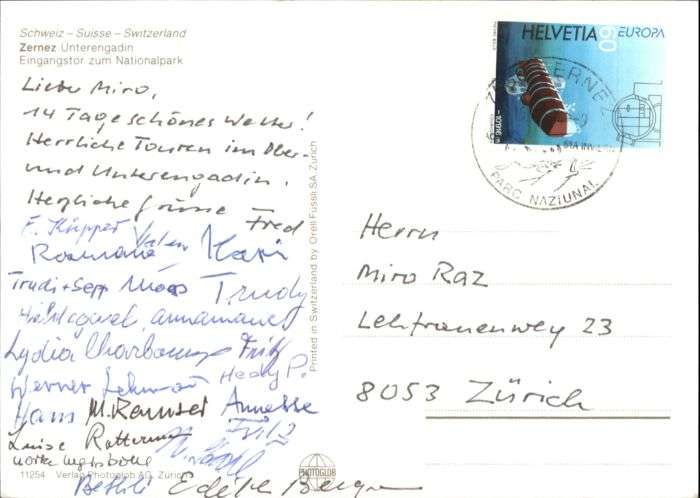 Schweiz – Suisse – Switzerland
Zernez Unterengadin
Eingangstor zum Nationalpark
Lieber Miro,
14 Tage schönes Wetter!
Herrliche Touren im Ober-
und Unterengadin.
Herzliche Grüsse Fred
F. Küpper
Rosmarie Kari
Trudi + Sepp Moos Trudy
annamarie
Lydia Fritz
Werner Hedy P.
Hans M. Annelie
Luise Fritz
Bethli Edith Berger
11254 Verlag Photoglob AG, Zürich
PHOTOGLOB
Printed in Switzerland by Orell Füssli SA, Zürich
HELVETIA 60 EUROPA
ZERNEZ
PARC NAZIUNAL
Herrn
Miro Raz
Lehfrauenweg 23
8053 Zürich